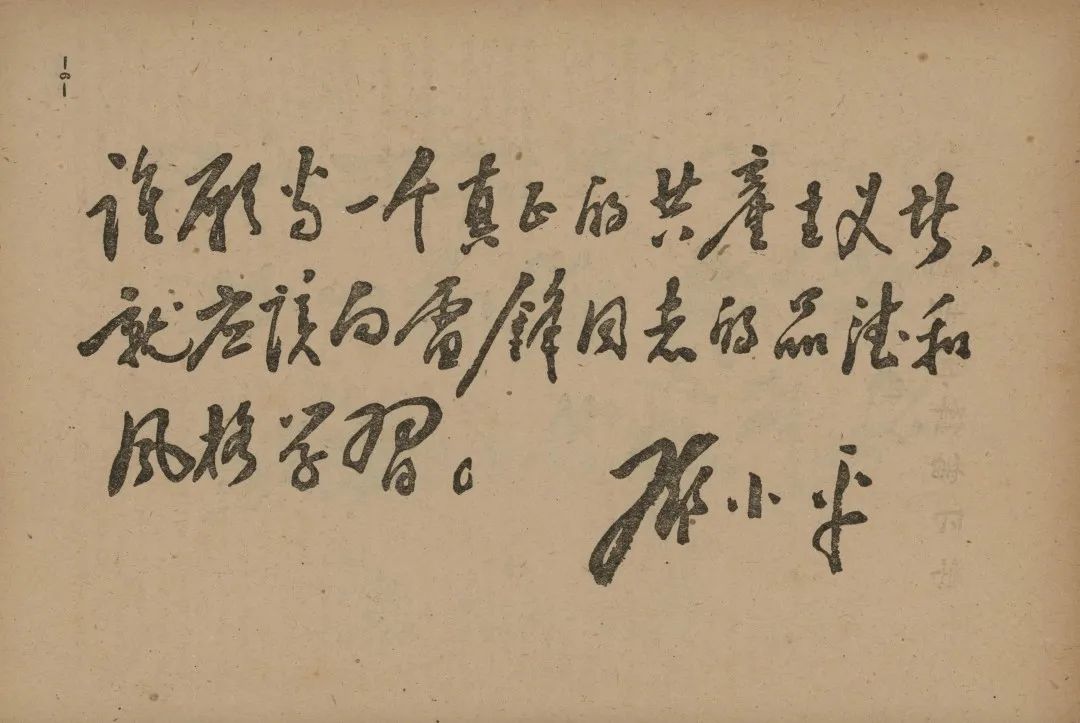 谁愿当一个真正的共产主义者，
就应该向雷锋同志的品德和
风格学习。
邓小平
—6—